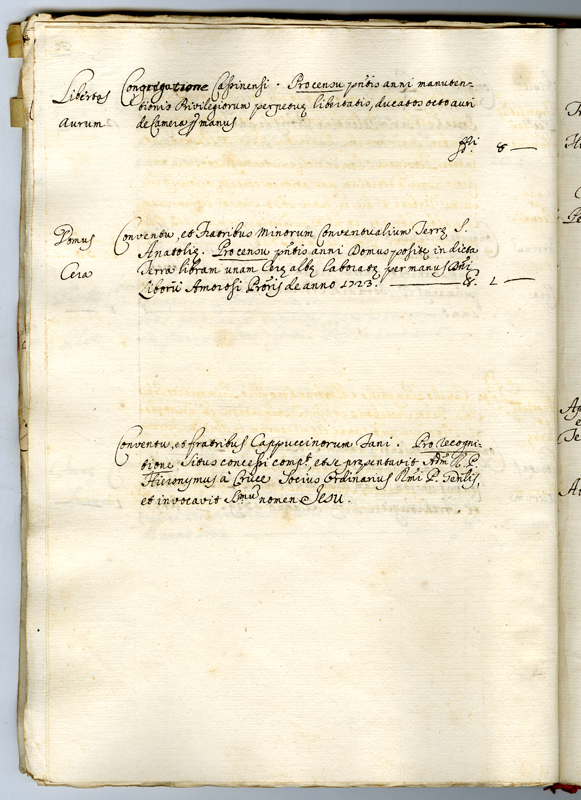 Libertas
Aurum
Congregatione Cassinensi. Pro censu pñtis anni manuten-
tionis Privilegiorum perpetuę libertatis, ducatos octo auri
de Camera p manus
ffli 8 —
Domus
Cera
Conventu, et Fratribus Minorum Conventualium Terrę S.
Anatolię. Pro censu pñtis anni Domus positę in dicta
Terra libram unam Cerę albę laboratę per manus Dñi
Liborii Amorosi Pröris de anno 1723. — 1 —
Conventu, et fratribus Cappuccinorum Fani. Pro recogni-
tione Situs concessi comp.t, et se pręsentavit Adm. R. P.
Hieronymus a Cruce Socius Ordinarius Rmi P. Genlis,
et invocavit Smũ nomen Jesu.